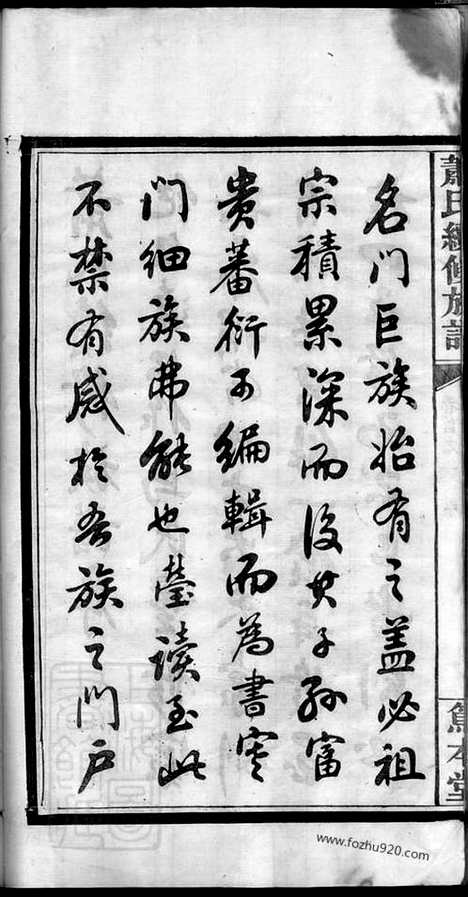 蕭氏續修族譜
篤本堂
名门巨族始有之盖必祖
宗積累深而後其子孙富
贵蕃衍可编輯而為書寒
门细族弗能也莹读至此
不禁有感於吾族之门户
www.fozhu920.com